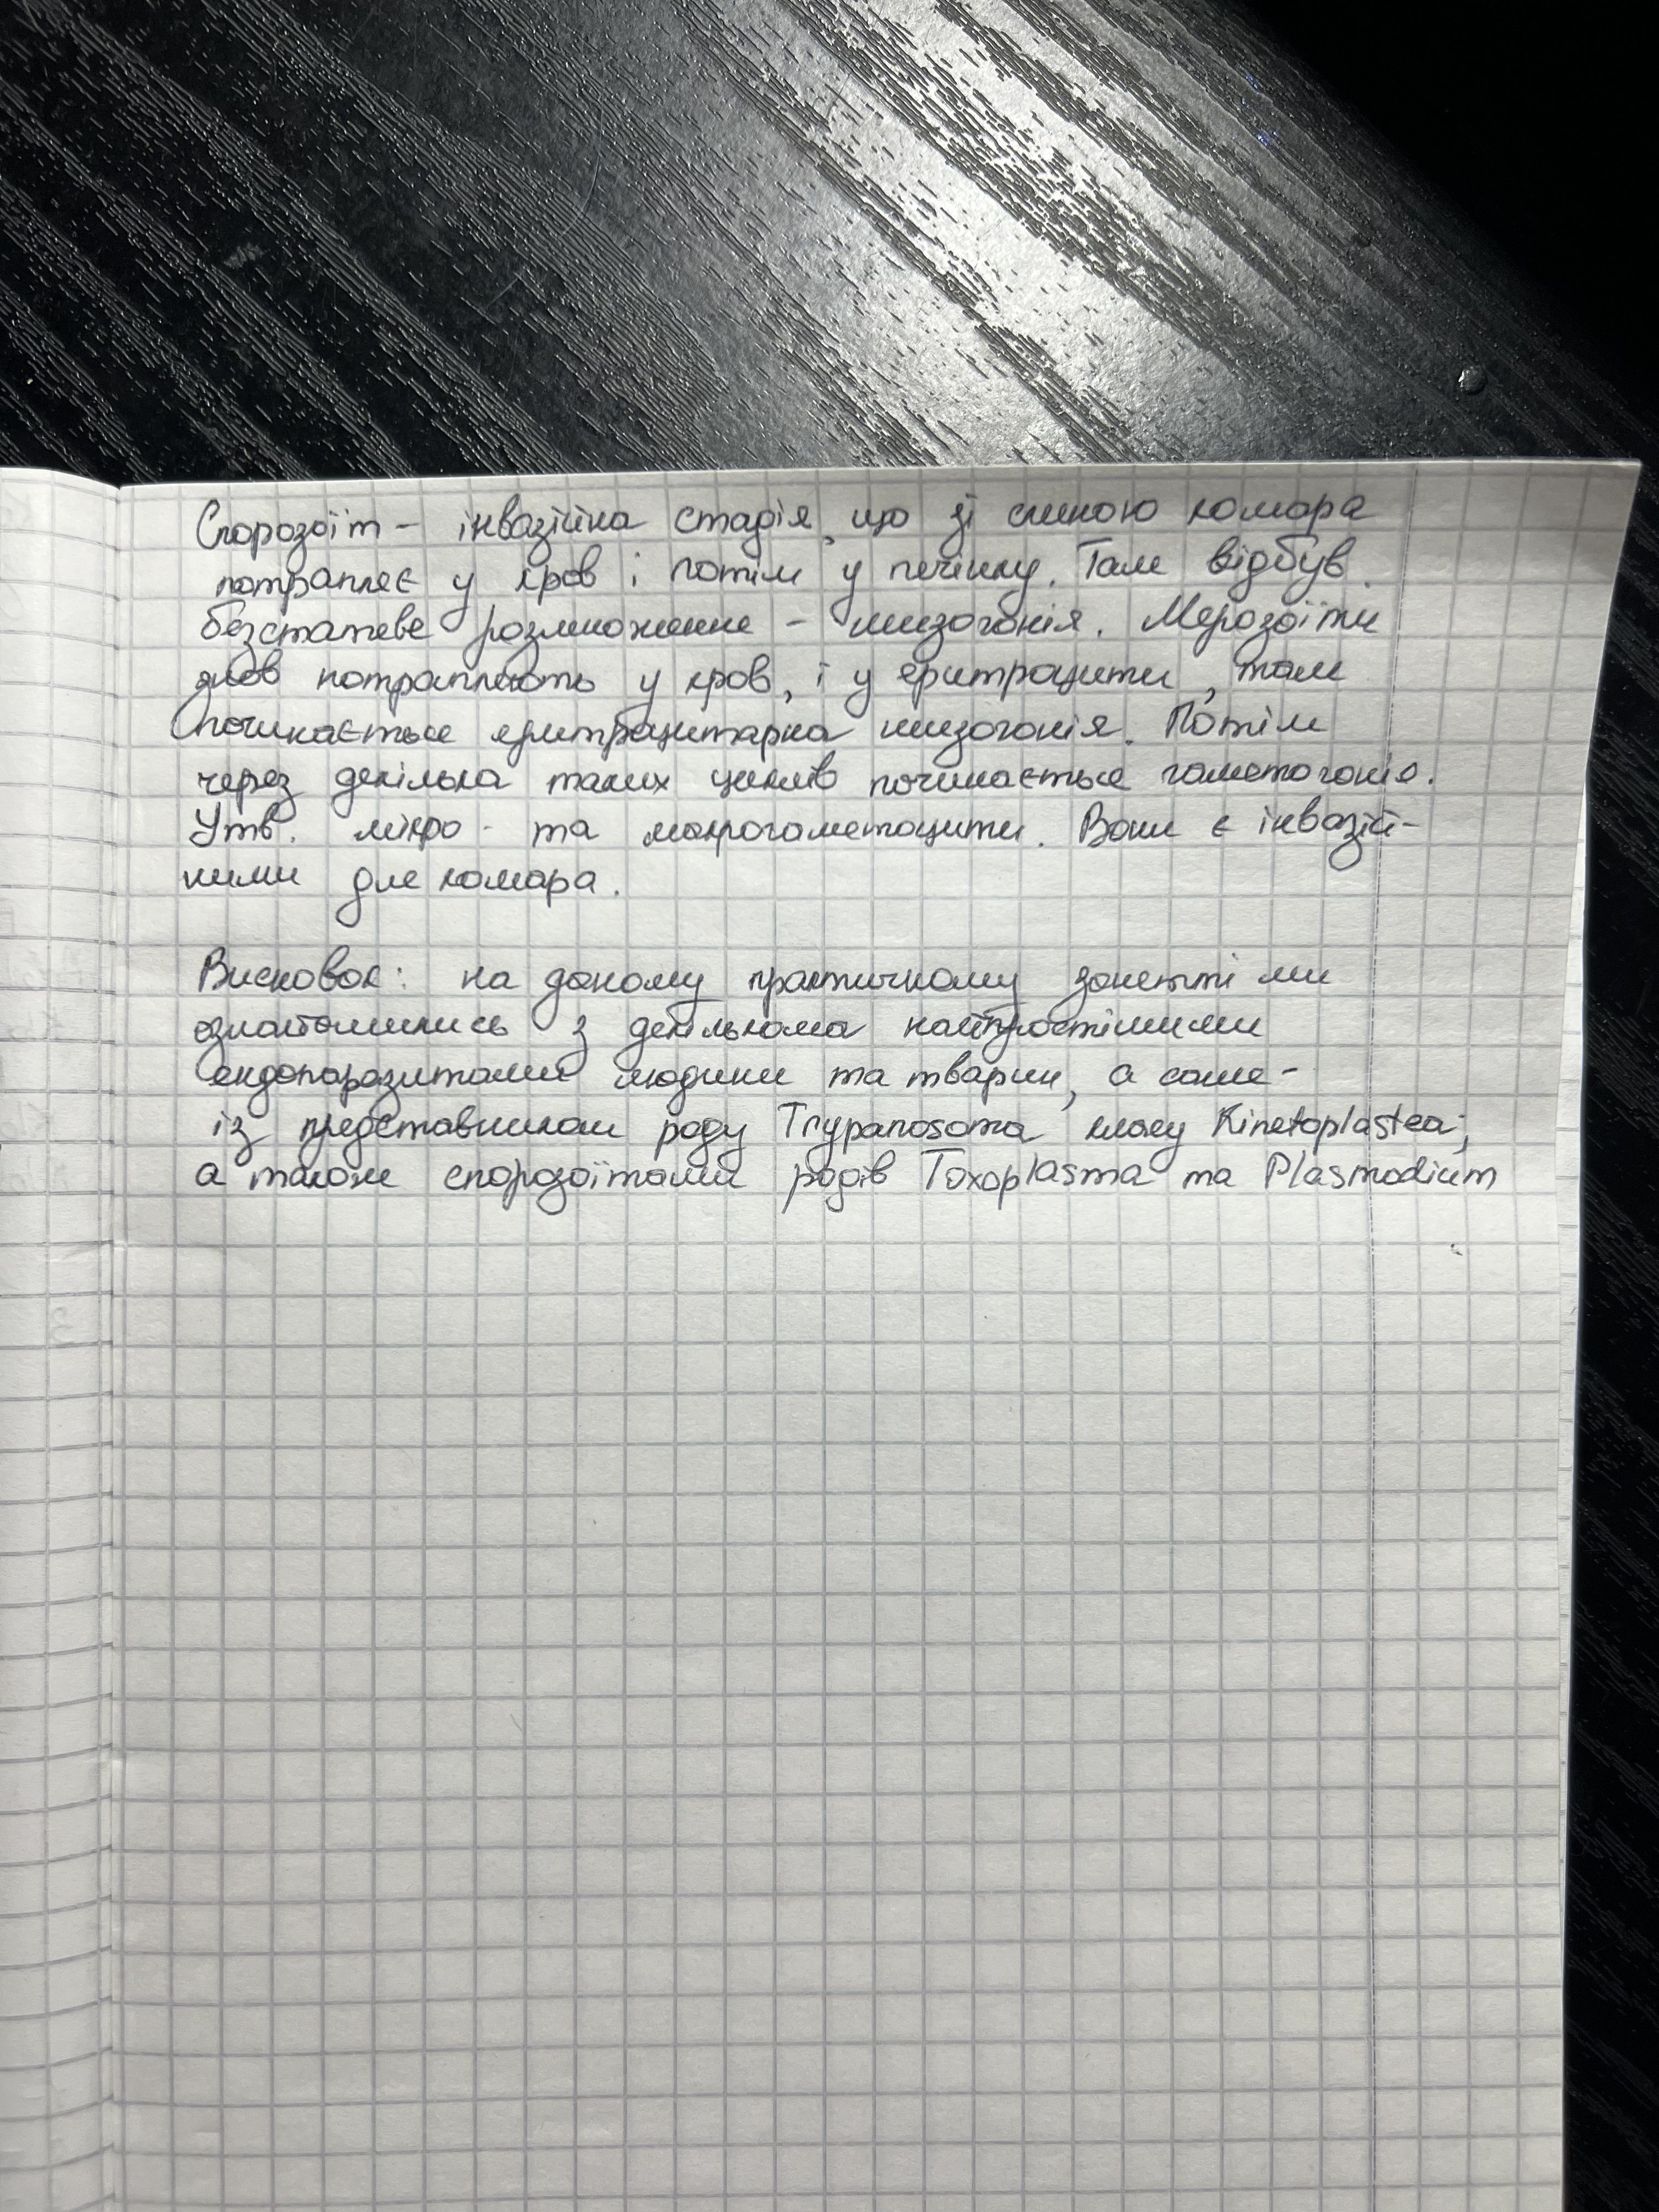 Спорозоїт – інвазійна стадія, що зі слиною комара
потрапляє у кров і потім у печінку. Там відбув.
безстатеве розмноження – шизогонія. Мерозоїти
знов потрапляють у кров, і у еритроцити, там
починається еритроцитарна шизогонія. Потім
через декілька таких циклів починається гаметогонія.
Утв. мікро- та макрогаметоцити. Вони є інвазій-
ними для комара.
Висновок: на даному практичному занятті ми
ознайомились з декількома найпростішими
ендопаразитами людини та тварин, а саме –
із представником роду Trypanosoma класу Kinetoplastea;
а також спорозоїтами родів Toxoplasma та Plasmodium